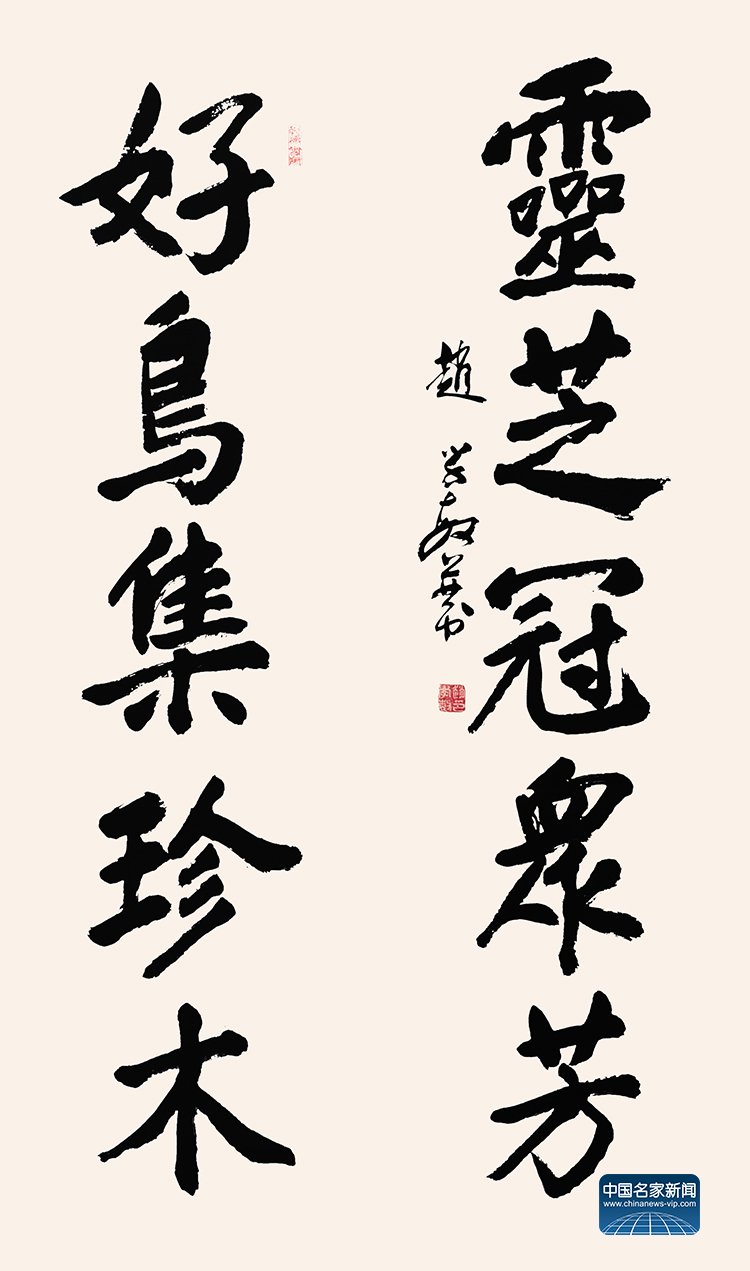 靈芝冠眾芳
趙学敏
好鳥集珍木
中国名家新闻
www.chinanews-vip.com